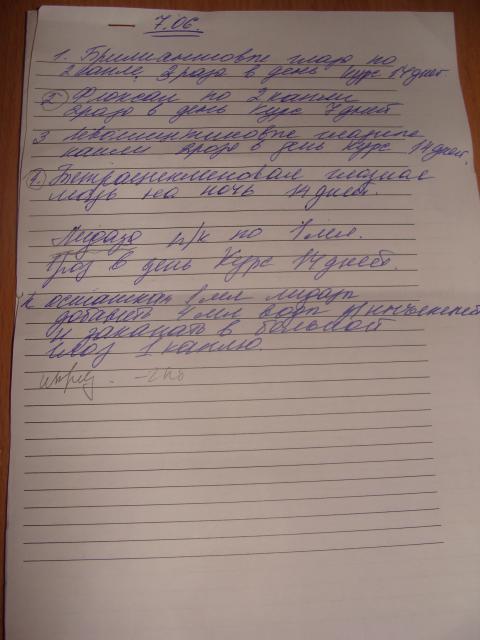 7.06.
1. Бриллиантовые глаза по
2 капле, 2 раза в день курс 14 дней
2 Флоксал по 2 капли
2 раза в день курс 7 дней
3 глазные
капли 2 раза в день курс 14 дней.
4. Тетрациклиновая глазная
мазь на ночь 14 дней.
Лидаза п/к по 1 мл.
1 раз в день Курс 14 дней.
К остаткам 1 мл лидазы
добавить 4 мл воды инъекций
и закапать в больной
глаз 1 каплю.